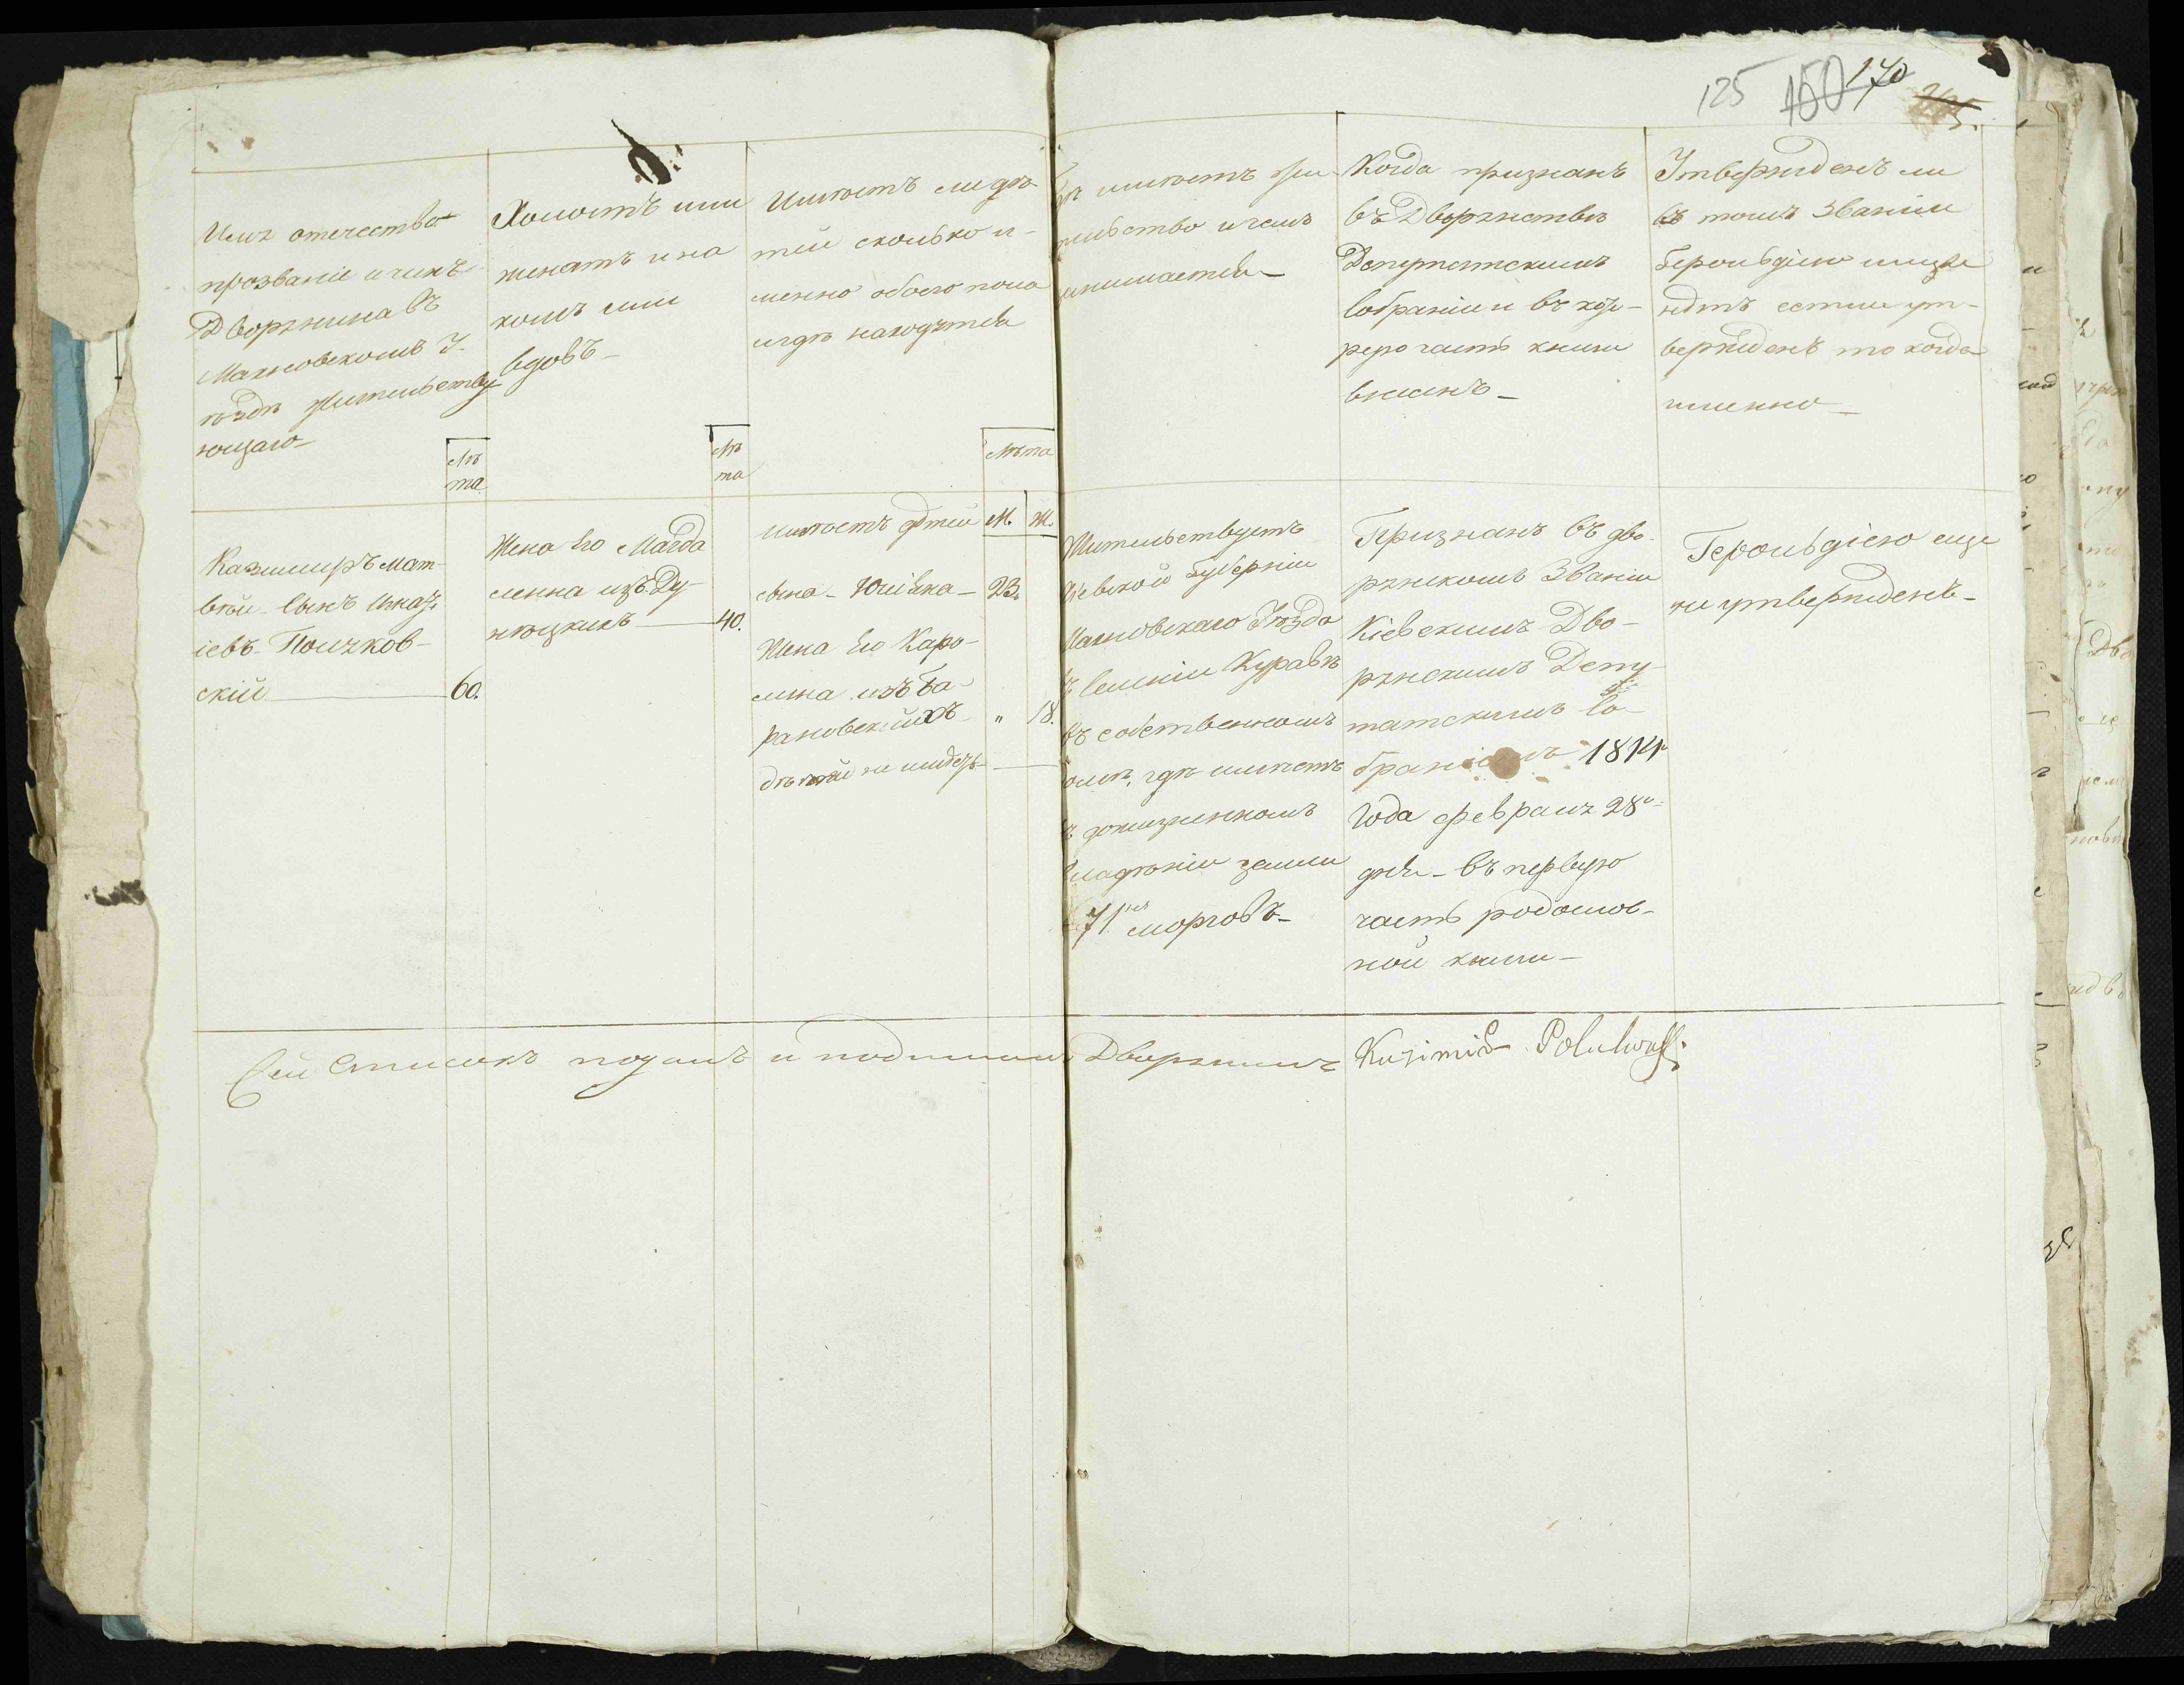 125 150 170
Имя отечество
прозвание и чинъ
Дворянина въ
Махновскомъ У-
ѣздѣ жительству-
ющаго
Лѣ
та
Холостъ или
женатъ и на
комъ или
вдовъ
Лѣ
та
Имѣетъ ли дѣ-
тей сколько и-
менно обоего пола
и гдѣ находятся
Лѣта
М. Ж.
имѣетъ жи-
тельство и чемъ
занимается
Когда признанъ
въ Дворянствѣ
Депутатскимъ
Собраніемъ и въ кото-
рую часть книги
внесенъ
Утвержденъ ли
въ томъ званіи
Герольдіею или
нѣтъ естли ут-
вержденъ то когда
именно
Казимиръ Мат-
вѣй Сынъ Игнать
іевъ Полчков-
скій 60.
Жена Его Магда
лена изъ Ду
нѣцкихъ 40.
имѣетъ дѣтей
сына Юліяна 23.
Жена Его Каро-
лина изъ Ба
рановскихъ „ 18.
дѣтей не имѣетъ
Жительствуетъ
Кіевской Губерніи
Махновскаго Уѣзда
въ селеніи Журавнѣ
въ собственномъ
домѣ, гдѣ имѣетъ
въ пожизненномъ
владѣніи земли
71 морговъ
Признанъ въ дво-
рянскомъ Званіи
Кіевскимъ Дво-
рянскимъ Депу
татскимъ Со-
браніемъ 1814
Года февраля 28
дня въ первую
часть родослов-
ной книги
Герольдіею еще
не утвержденъ
Сей Списокъ подалъ и подписалъ Дворянинъ Kazimierz